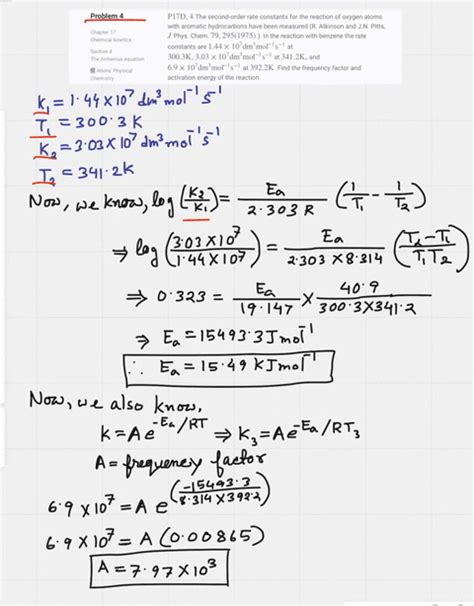 Problem 4
Chapter 17
Chemical kinetics
Section 4
The Arrhenius equation
Atkins' Physical
Chemistry
P17D, 4 The second-order rate constants for the reaction of oxygen atoms
with aromatic hydrocarbons have been measured (R. Atkinson and J.N. Pitts,
J Phys. Chem. 79, 295(1975) ). In the reaction with benzene the rate
constants are 1.44 × 10⁷dm³mol⁻¹s⁻¹ at
300.3K, 3.03 × 10⁷dm³mol⁻¹s⁻¹ at 341.2K, and
6.9 × 10⁷dm³mol⁻¹s⁻¹ at 392.2K. Find the frequency factor and
activation energy of the reaction.
K₁ = 1.44×10⁷ dm³ mol⁻¹ s⁻¹
T₁ = 300.3 K
K₂ = 3.03×10⁷ dm³ mol⁻¹ s⁻¹
T₂ = 341.2k
Now, we know, log (K₂/K₁) = Ea/2.303 R (1/T₁ - 1/T₂)
⇒ log (3.03×10⁷/1.44×10⁷) = Ea/2.303×8.314 (T₂-T₁/T₁T₂)
⇒ 0.323 = Ea/19.147 × 40.9/300.3×341.2
⇒ Ea = 15493.3 J mol⁻¹
∴ Ea = 15.49 kJ mol⁻¹
Now, we also know,
k = A e^-Ea/RT ⇒ k₃ = A e^-Ea/RT₃
A = frequency factor
6.9 × 10⁷ = A e^(-15493.3/8.314×392.2)
6.9 × 10⁷ = A (0.00865)
A = 7.97 × 10³